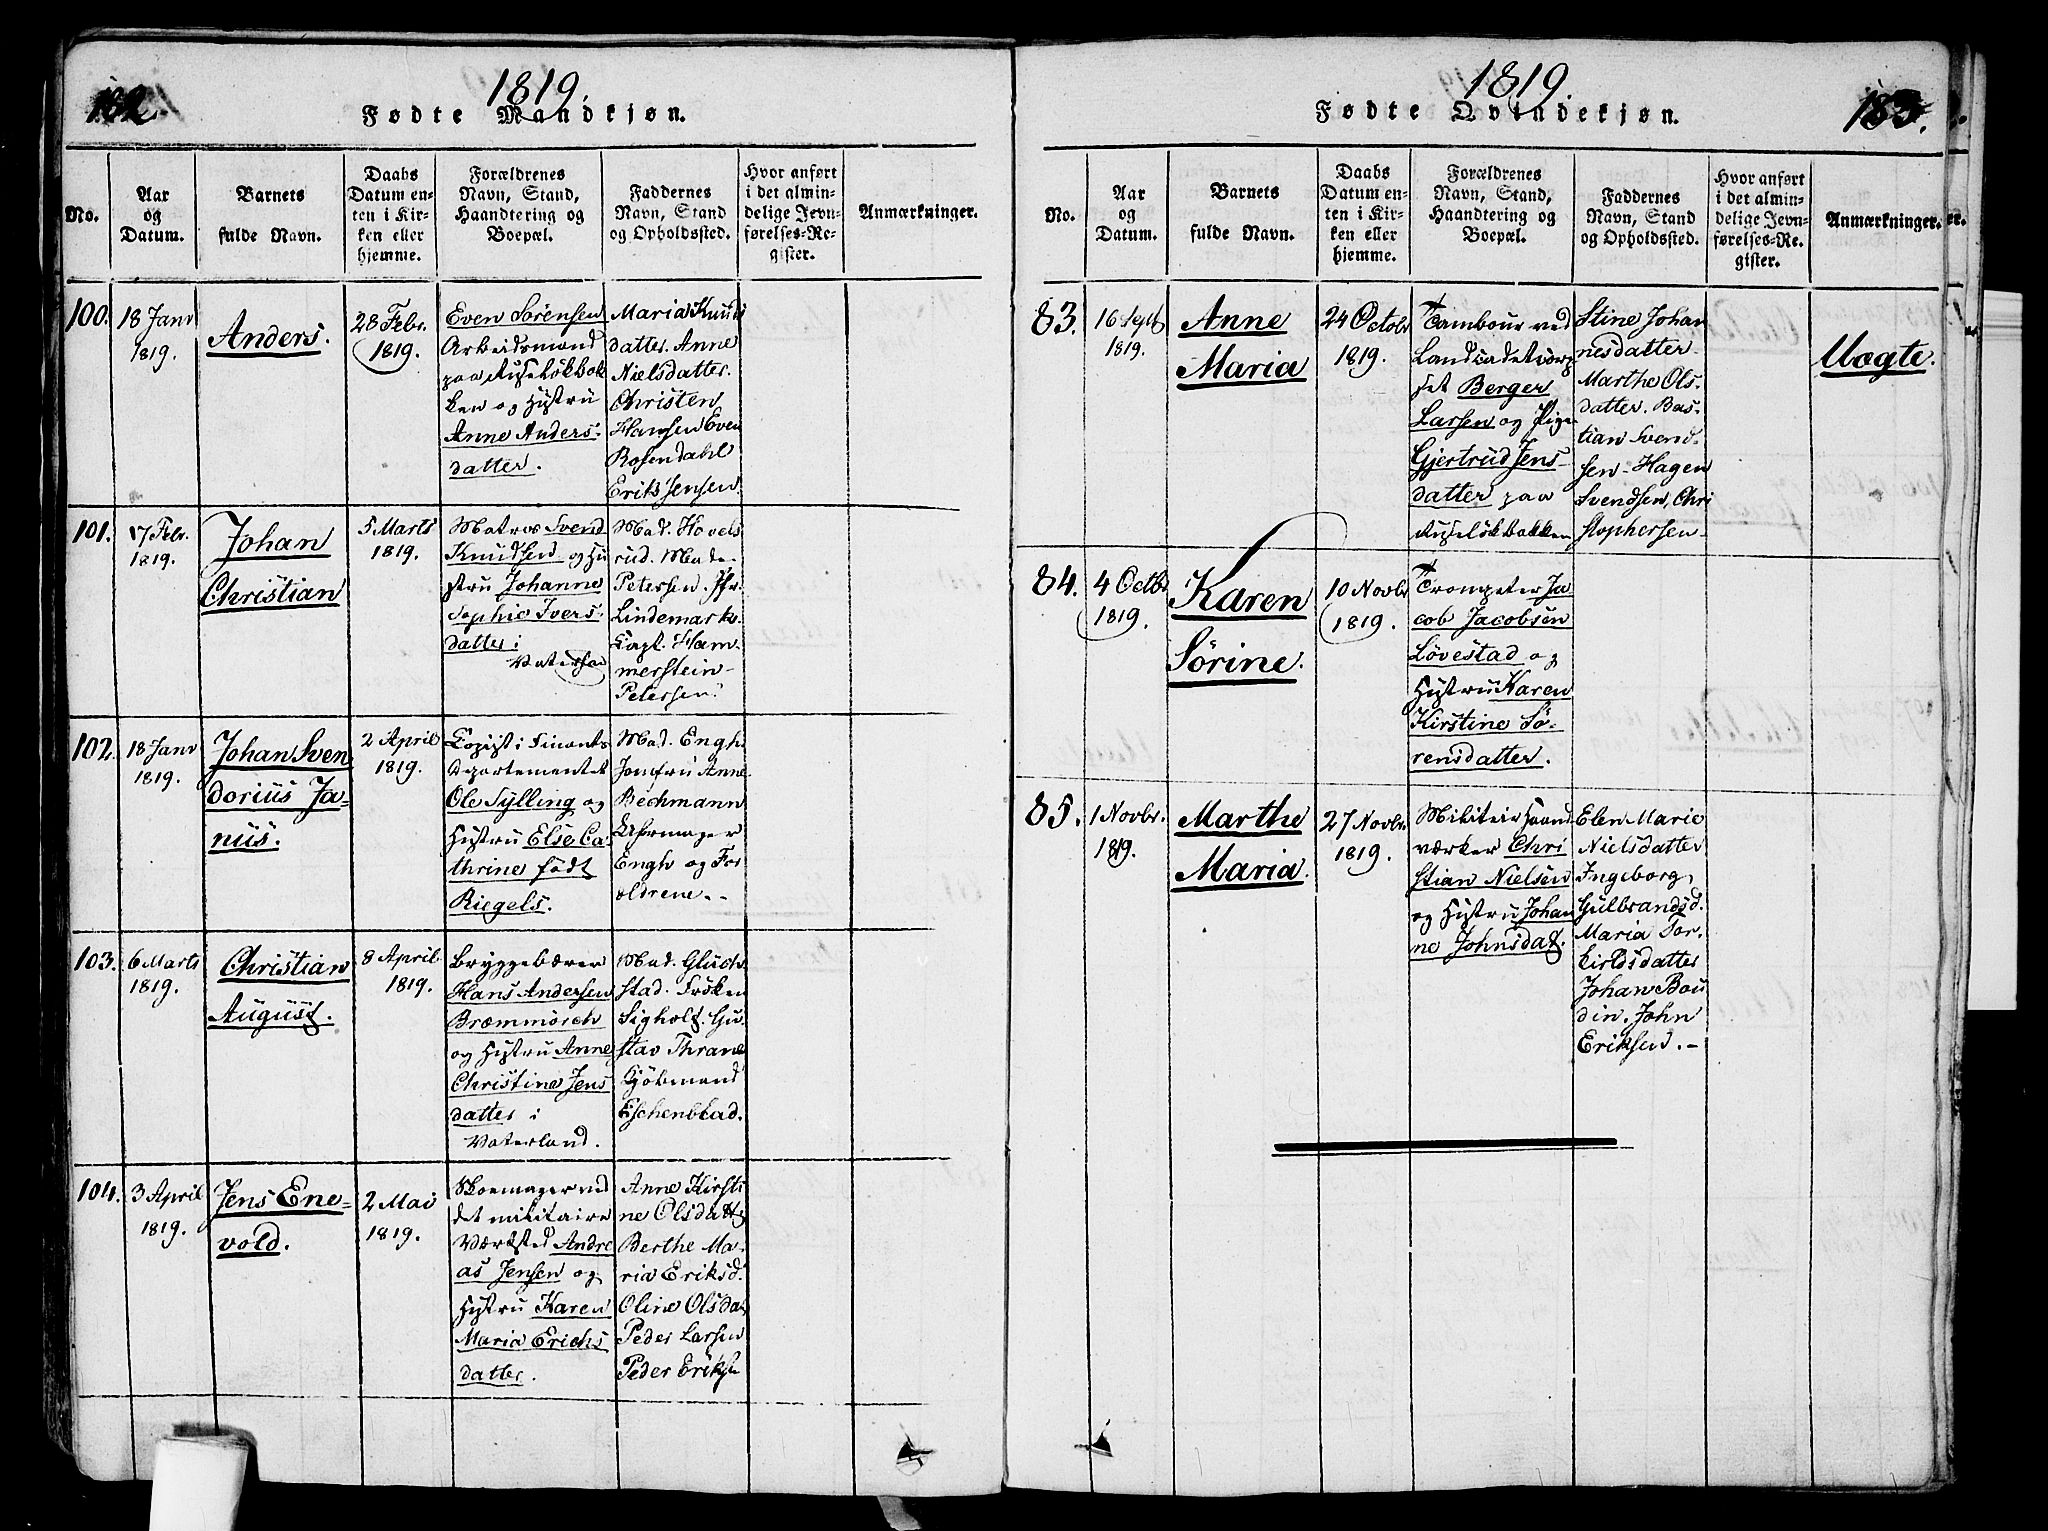 182
1819.
Fødte Mandkjøn.
No.
Aar
og
Datum.
Barnets
fulde Navn.
Daabs
Datum en-
ten i Kir-
ken eller
hjemme.
Forældrenes
Navn, Stand,
Haandtering og
Boepæl.
Faddernes
Navn, Stand
og Opholdssted.
Hvor anført
i det almin-
delige Jevn-
førelses-Re-
gister.
Anmærkninger.
100.
18 Janv
1819.
Anders.
28 Febr.
1819.
Even Sörensen
Arbeidsmand
paa Ruseløkbak
ken og Hustru
Anne Anders-
datter.
Maria Knuds
datter. Anne
Nielsdatter.
Christen
Hansen Even
Rosendahl
Erik Jensen.
101.
17 Febr.
1819.
Johan
Christian
5 Marts
1819.
Matros Svend
Knudsen og Hu
stru Johanne
Sophie Ivers-
datter i
Mad. Hovels
rud. Mad.
Petersen. Hr.
Lindemark.
Capt. Ham-
merstein-
Petersen.
102.
18 Janv
1819.
Johan Sven
dorius Ja-
nus.
2 April
1819.
Copist i Finants
Departementet
Ole Sylling og
Hustru Else Ca-
thrine født
Riegels.
Mad. Engh.
Jomfru Anne
Bechmann
Uhrmager
Engh og For
ældrene.-
103.
6 Marts
1819.
Christian
August.
8 April
1819.
Bryggebærer
Hans Andersen
Bræmmörch
og Hustru Anne
Christine Jens
datter i
Vaterland.
Mad. Gluck
stad. Fröken
Sigholt. Gu
stav Thrane
Kjöbmand
Eschenblad.
104.
3 April
1819.
Jens Ene-
vold.
2 Mai
1819.
Skomager ved
det militaire
Værksted Andre
as Jensen og
Hustru Karen
Maria Erichs
datter.
Anne Kirsti
ne Olsdattr
Berthe Ma-
ria Eriksd.
Oline Olsdat
Peder Larsen
Peder Eriks
183.
1819.
Fødte Qvindekjøn.
No.
Aar
og
Datum.
Barnets
fulde Navn.
Daabs
Datum en-
ten i Kir-
ken eller
hjemme.
Forældrenes
Navn, Stand,
Haandtering og
Boepæl.
Faddernes
Navn, Stand
og Opholdssted.
Hvor anført
i det almin-
delige Jevn-
førelses-Re-
gister.
Anmærkninger.
83.
16 Sept
1819.
Anne
Maria
24 Octobr
1819.
Tambour ved
Landcadetcorp
set Berger
Larsen og Pige
Gjertrud Jens-
datter paa
Ruseløkbakken
Stine Johan
nesdatter-
Marthe Ols-
datter. Bas-
tian Svend-
sen- Hagen
Svendsen, Chri
stophersen-
Uægte.
84.
4 Octbr
1819.
Karen
Sörine.
10 Novbr
1819.
Trompeter Ja
cob Jacobsen
Lövestad og
Hustru Karen
Kirstine Sö-
rensdatter.
85.
1 Novbr.
1819.
Marthe
Maria.
27 Novbr
1819.
Militair Haand
værker Chri
stian Nielsen
og Hustru Johan
ne Johnsdat.
Elen Marie
Nielsdatter
Ingeborg
Gulbrandsd.
Maria Tor-
kildsdatter
Johan Bou
din. John
Eriksen.-